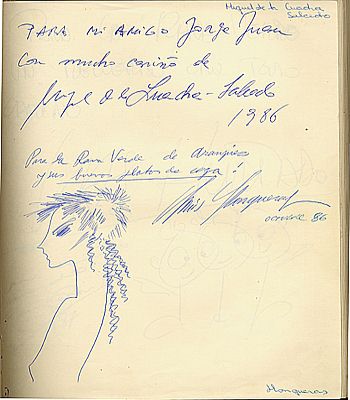 Miguel de la Cuadra
Salcedo
PARA MI AMIGO Jorge Juan
Con mucho cariño de
Miguel de la Cuadra-Salcedo
1986
Para la Rana Verde de Aranjuez
y sus buenos platos de caza!
octubre 86